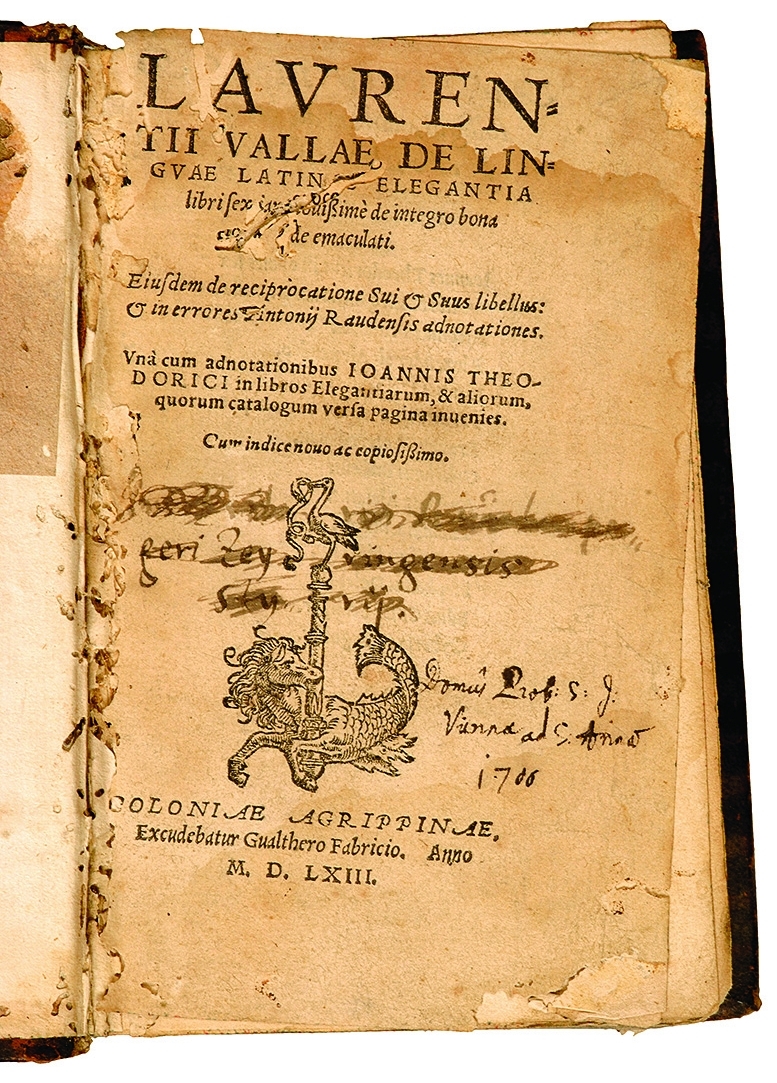 LAVREN-
TII VALLAE DE LIN-
GVAE LATINAE ELEGANTIA
libri sex iam nouißimè de integro bona
de emaculati.
Eiusdem de reciprocatione Sui & Suus libellus:
& in errores Antonij Raudensis adnotationes.
Vnà cum adnotationibus IOANNIS THEO-
DORICI in libros Elegantiarum, & aliorum,
quorum catalogum versa pagina inuenies.
Cum indice nouo ac copiosißimo.
geri
Domus Prof. S. J.
Viennae ad S. Annã
1706
COLONIAE AGRIPPINAE,
Excudebatur Gualthero Fabricio. Anno
M. D. LXIII.